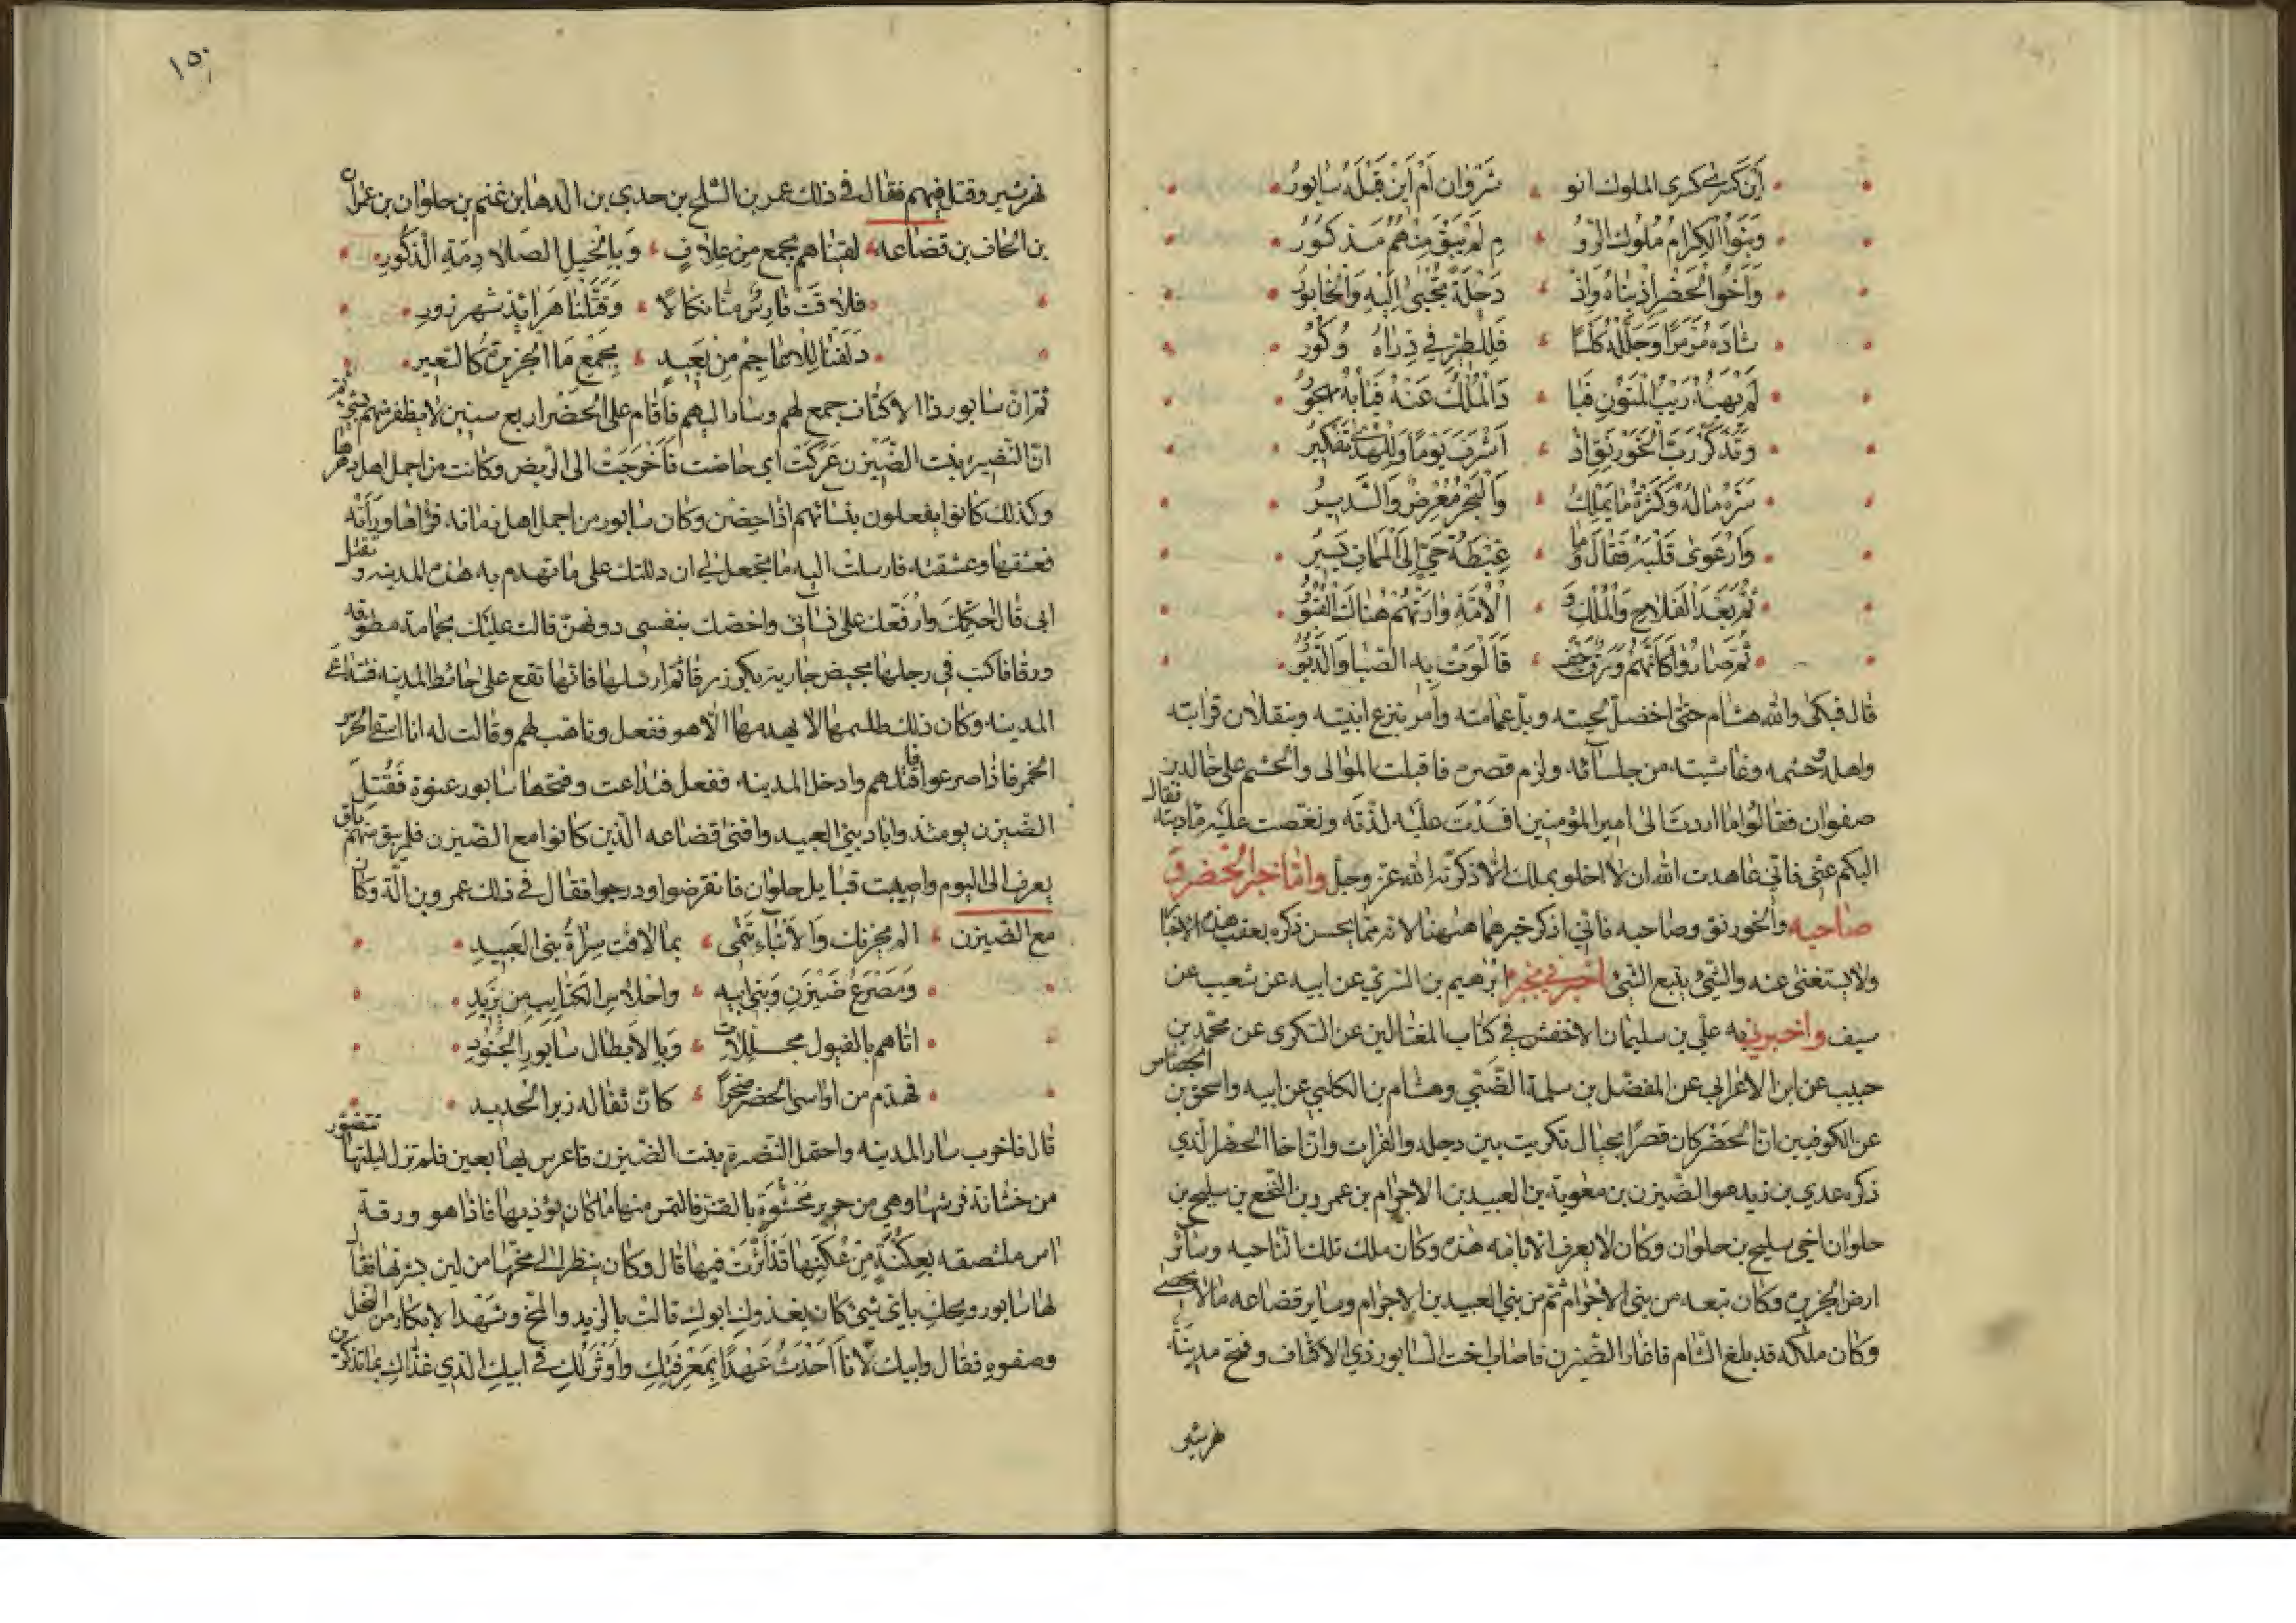 أين كسرى كسرى الملوك انو شروان أم أين قبله سابور
وبنوا الكرام ملوك الرو م لم يبق منهم مذكور
وأخوا الحضر اذ بناه واذ دجلة تجبى إليه والخابور
شاده مرمرا وجلله كلسا فللطير في ذراه وكور
لم يهبه ريب المنون فبا د الملك عنه فبابه مهجور
وتذكر رب الخورنق اذ أشرف يوما وللهدى تفكير
سره ماله وكثرة ما يملك والبحر معرض والسدير
وارعوى قلبه فقال وما غبطة حي إلى الممات يسير
ثم بعد الفلاح والملك و الأمة وارتهم هناك القبور
ثم صاروا كأنهم ورق جف فألوت به الصبا والدبور
قال فبكى والله هشام حتى اخضل لحيته وبل عمامته وأمر بنزع ابنيته وبنقلان قرابته
واهله وحشمه وغاشيته من جلسائه ولزم قصره فاقبلت الموالى والحشم على خالد بن
صفوان فقالوا ما اردت الى امير المؤمنين افسدت عليه لذته ونغصت عليه مادبته فقال
اليكم عنى فاني عاهدت الله ان لا اخلو بملك الا ذكرته الله عز وجل واما خبر الحضر و
صاحبه والخورنق وصاحبه فاني اذكر خبرهما هنهنا لانه مما يحسن ذكره بعقب هذه الاخبا
ولا يستغنى عنه والشئ يتبع الشئ اخبرني بخبره ابرهيم بن السري عن ابيه عن شعيب عن
سيف واخبرني به علي بن سليمان الاخفش في كتاب المغتالين عن السكرى عن محمد بن
حبيب عن ابن الاعرابي عن المفضل بن سلمة الضبي وهشام بن الكلبي عن ابيه واسحق بن الجصاص
عن الكوفيين ان الحضر كان قصرا بجبال تكريت بين دجله والفرات وان اخا الحضر الذي
ذكره عدي بن زيد هو الضيزن بن معوية بن العبيد بن الاجرام بن عمرو بن النخع بن سليح بن
حلوان اخي سليح بن حلوان وكان لا يعرف الا بامه هذه وكان ملك تلك الناحيه وسائر
ارض الجزيره وكان تبعه من بني الاجرام ثم من بني العبيد بن الاجرام وساير قضاعه ما لا يحصى
وكان ملكه قد بلغ الشام فاغار الضيزن فاصاب اخت السابور ذي الاكتاف وفتح مدينة
نهرشير
١٥٠
نهرشير وقتل فيهم فقال في ذلك عمر بن السليح بن حدي بن الدها بن غنم بن حلوان بن عمران
بن الحاف بن قضاعه لقيناهم بجمع من علاف وبالخيل الصلادمة الذكور
فلاقت فارس منا نكالا وقتلنا هرابذ شهرزور
دلفنا للاعاجم من بعيد بجمع ما الجزيرة كالسعير
ثم ان سابور ذا الاكتاف جمع لهم وسار اليهم فأقام على الحضر اربع سنين لا يظفر منهم بشئ ثم
ان النضيره بنت الضيزن عركت اي حاضت فأخرجت الى الربض وكانت من اجمل اهل دهرها
وكذلك كانوا يفعلون بنسائهم اذا حضن وكان سابور من اجمل اهل زمانه فرآها ورأته
فعشقها وعشقته فارسلت اليه ما تجعل لي ان دللتك على ما تهدم به هذه المدينه وتقتل
ابي قال احكمك وارفعك على نسائى واخصك بنفسى دونهن قالت عليك بحمامة مطوقه
ورقا فاكتب في رجلها بحيض جارية بكر زرقا ثم ارسلها فانها تقع على حائط المدينه فتداعى
المدينه وكان ذلك طلسمها لا يهدمها الا هو ففعل وتاهب لهم وقالت له انا اسقى الحرس
الخمر فاذا صرعوا فاقتلهم وادخل المدينه ففعل فتداعت وفتحها سابور عنوة فقتل
الضيزن يومئذ واباد بني العبيد وافنى قضاعه الذين كانوا مع الضيزن فلم يبق منهم باق
يعرف الى اليوم واصيبت قبايل حلوان فانقرضوا ودرجوا فقال في ذلك عمرو بن الة وكان
مع الضيزن الم يحزنك والأنباء تنمى بما لاقت سراة بني العبيد
ومصرع ضيزن وبني ابيه واحلاس الكتايب من يزيد
اتاهم بالفيول مجللات وبالأبطال سابور الجنود
فهدم من اواسى الحضر صخرا كان ثقاله زبر الحديد
قال فاخرب سار المدينه واحتمل النضرة بنت الضيزن فاعرس بها بعين فلم تزل ليلتها تتضور
من خشانة فرشها وهي من حرير محشوة بالقز فالتمس منها ما كان يؤذيها فاذا هو ورقة
اس ملتصقه بعكنة من عكنها قد أثرت فيها قال وكان ينظر الى مخها من لين بشرتها فقال
لها سابور ويحك بأي شئ كان يغذوك ابوك قالت بالزبد والمخ وشهد الابكار من النحل
وصفوه فقال وابيك لانا أحدث عهدا بمعرفتك وأوثر لك في ابيك الذي غذاك بما تذكرين